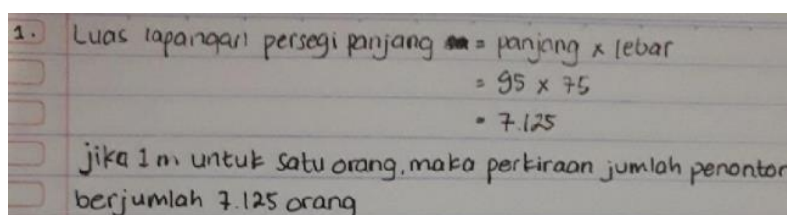 1. Luas lapangan persegi panjang = panjang x lebar
= 95 x 75
= 7.125
jika 1 m untuk satu orang, maka perkiraan jumlah penonton
berjumlah 7.125 orang